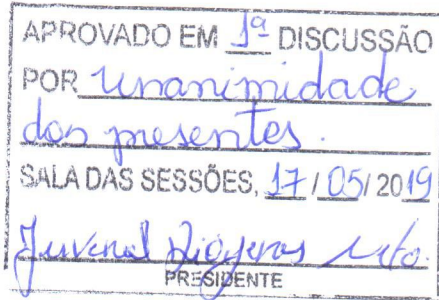 APROVADO EM 1ª DISCUSSÃO
POR unanimidade
dos presentes.
SALA DAS SESSÕES, 17/05/2019
Juvenal
PRESIDENTE